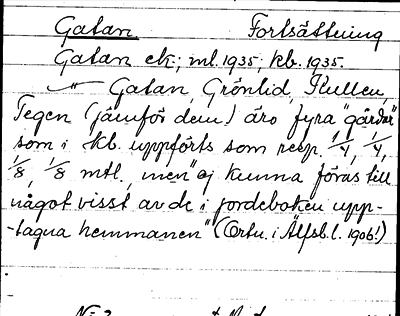 Gatan Fortsättning
Gatan ek; ml. 1935, kb. 1935.
—"— Gatan, Grönlid, Kullen
Tegen (jämför dem) äro fyra "gårdar"
som i kb. uppförts som resp. 1/4, 1/4,
1/8, 1/8 mtl, men "ej kunna föras till
något visst av de i jordeboken upp-
-tagna hemmanen" (Ortn. i Älfsb. l. 1906!)